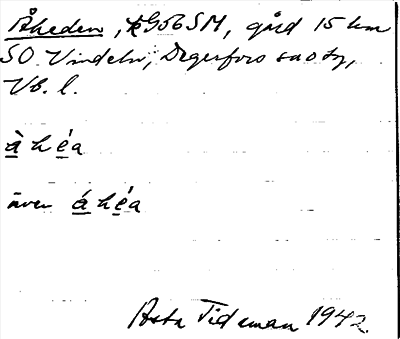 Åheden, G56SM, gård 15 km
SO Vindeln, Degerfors sn
Vb. l.
à h é a
även á h é a
Asta Tideman 1942.